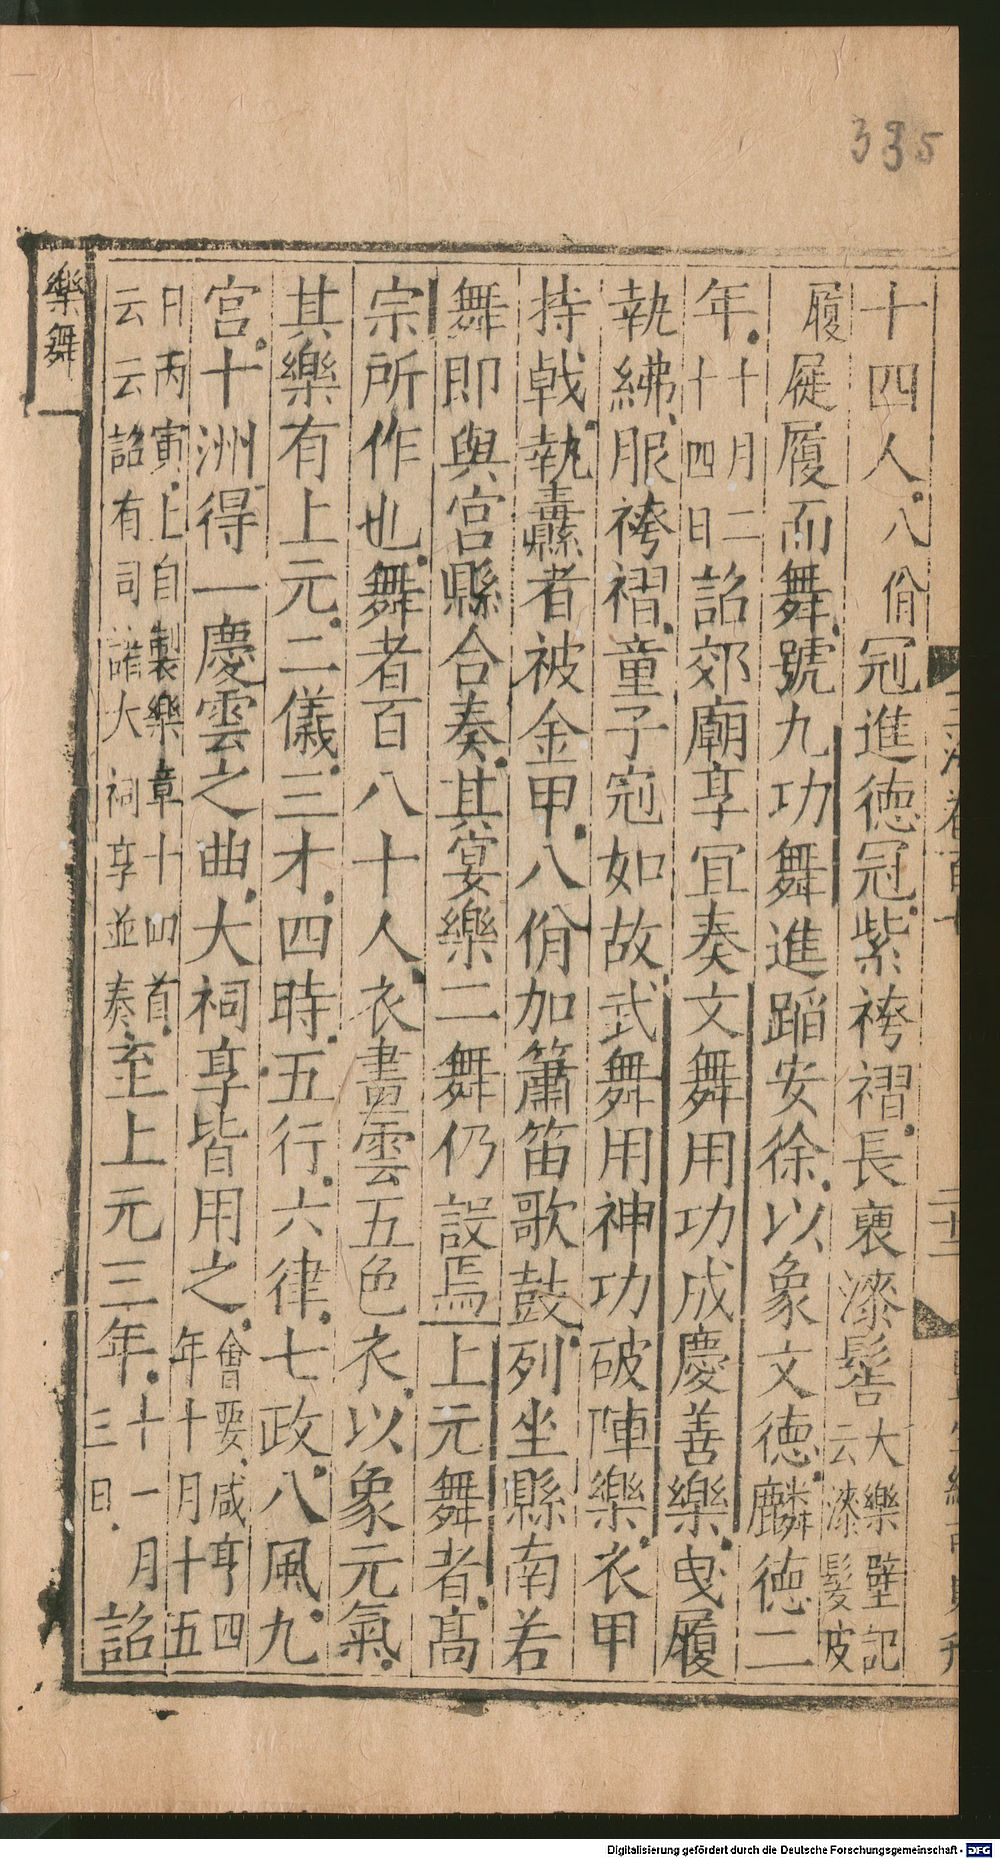 335
十四人八佾冠進德冠紫袴褶長裒漆髻大樂壁記云漆髮皮
履屣履而舞號九功舞進蹈安徐以象文德麟德二
年十月二十四日詔郊廟享宜奏文舞用功成慶善樂曳履
執紼服袴褶童子冠如故武舞用神功破陣樂衣甲
持戟執纛者被金甲八佾加簫笛歌鼓列坐縣南若
舞即與宮縣合奏其宴樂二舞仍設焉上元舞者高
宗所作也舞者百八十人衣畫雲五色衣以象元氣
其樂有上元二儀三才四時五行六律七政八風九
宮十洲得一慶雲之曲大祠享皆用之會要咸亨四年十月十五
日丙寅上自製樂章十四首云云詔有司諸大祠享並奏至上元三年十一月三日詔
樂舞
Digitalisierung gefördert durch die Deutsche Forschungsgemeinschaft - DFG